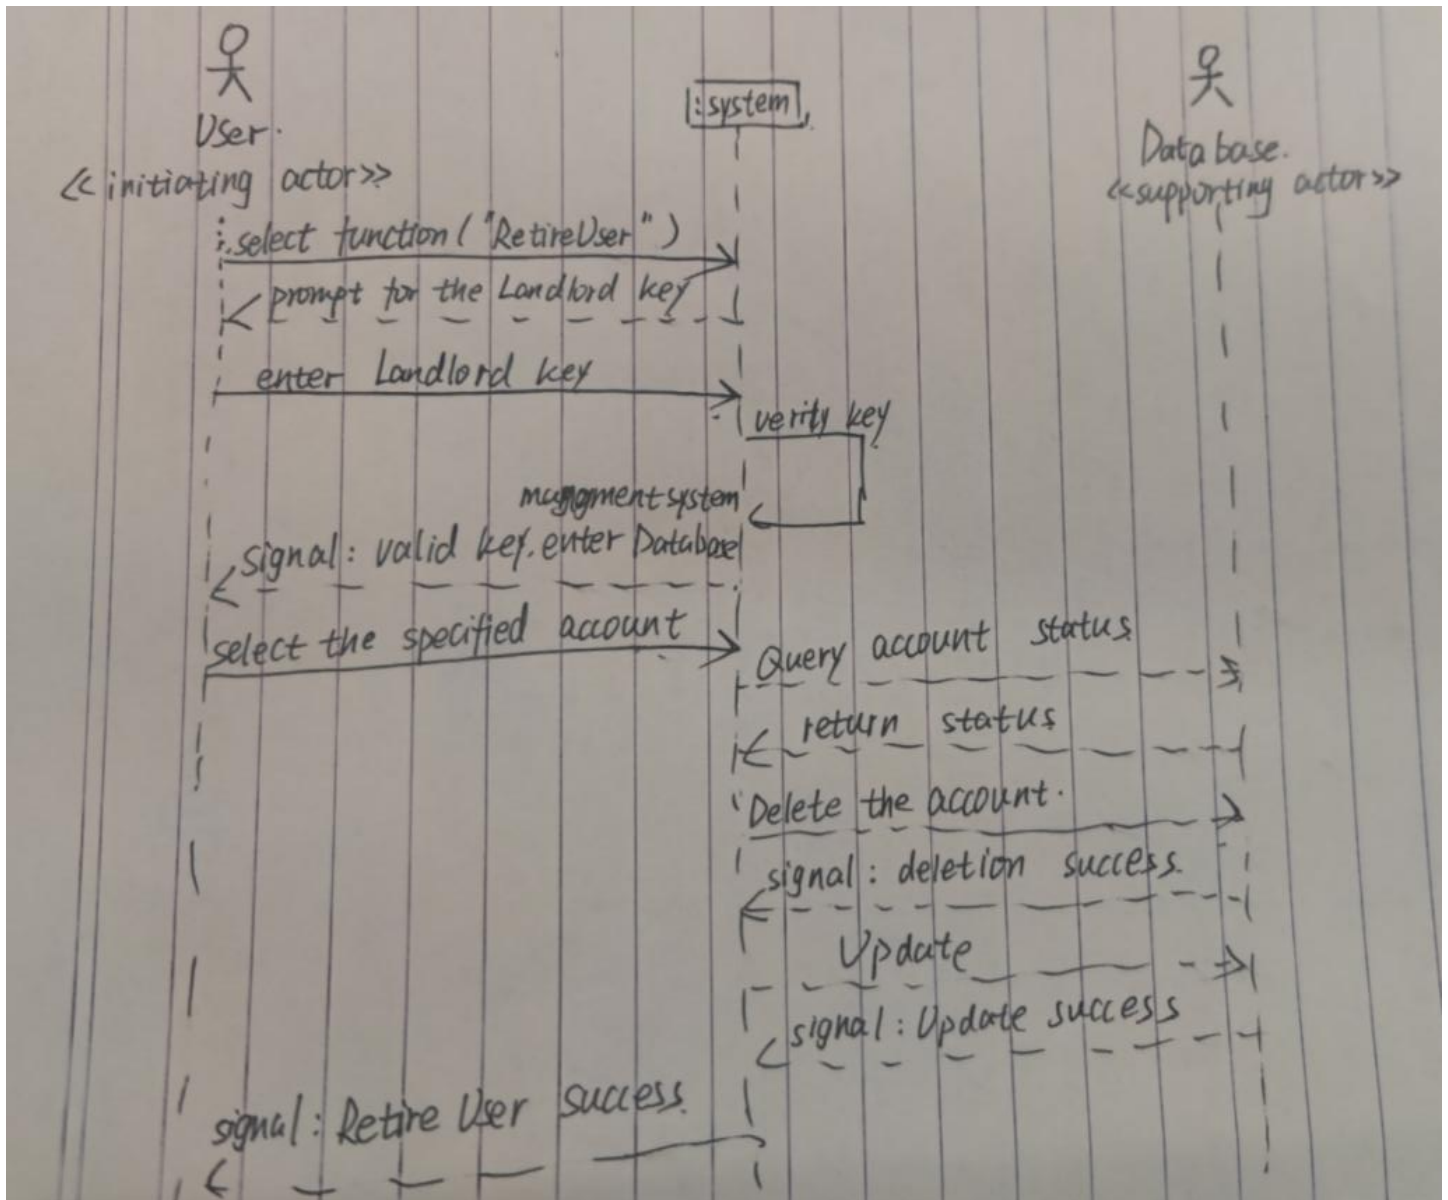 User.
<<initiating actor>>
:system
Database.
<<supporting actor>>
select function("RetireUser")
prompt for the Landlord key
enter Landlord key
verity key
signal: valid key. enter Database
system
select the specified account
Query account status
return status
Delete the account.
signal: deletion success.
Update
signal: Update success
signal: Retire User success.